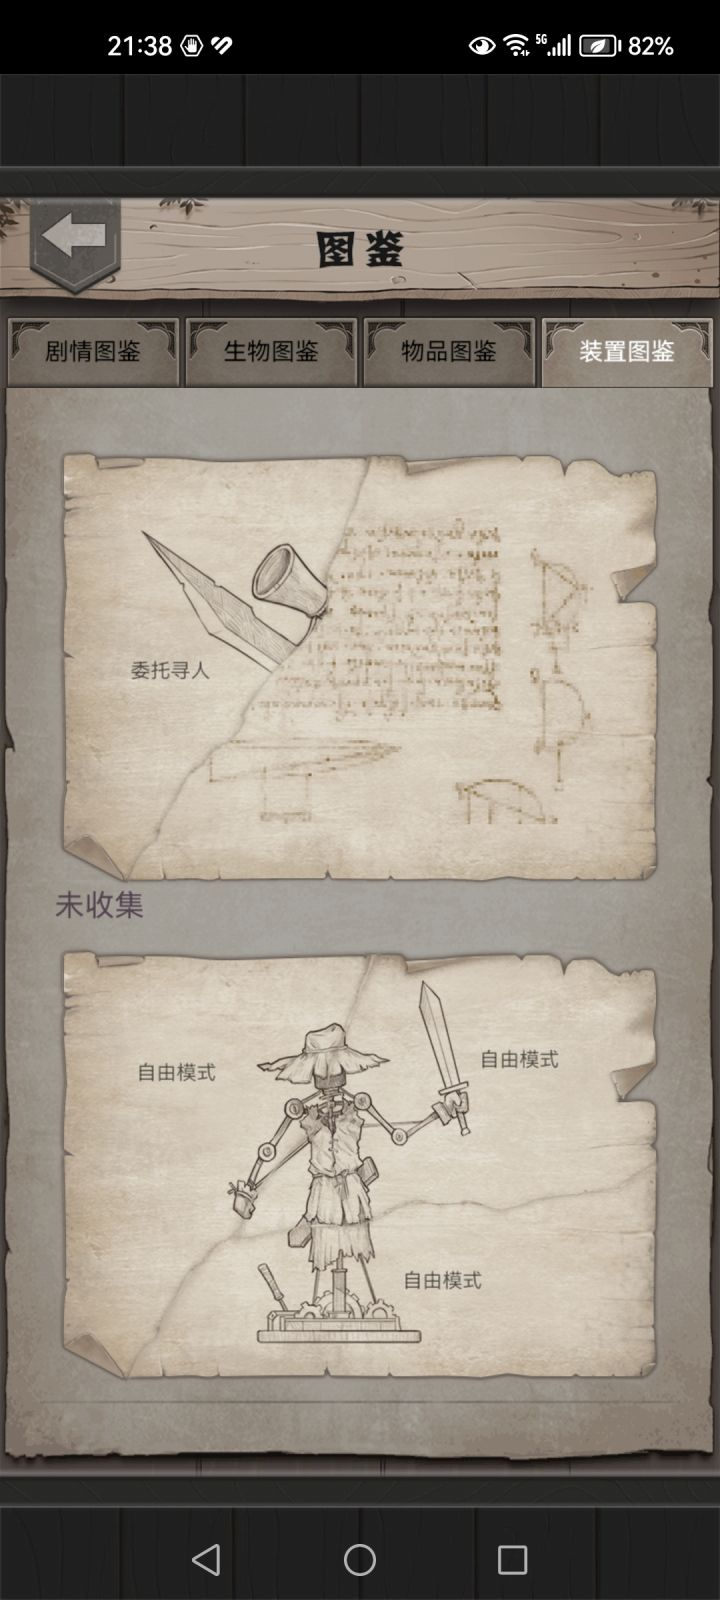 21:38
5G
82%
图鉴
剧情图鉴
生物图鉴
物品图鉴
装置图鉴
委托寻人
未收集
自由模式
自由模式
自由模式